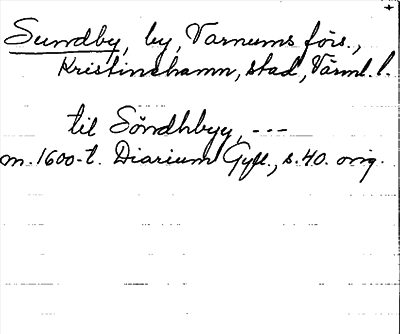 Sundby, by, Varnums förs.,
Kristinehamn, stad, Värml. l.
til Söndhbyy, ---
m. 1600-t. Diarium Gyll., s. 40. orig.